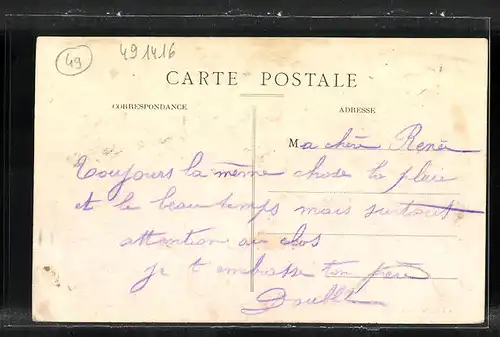 49
491416
CARTE POSTALE
CORRESPONDANCE
ADRESSE
Ma chère Renée
Toujours la même chose la pluie
et le beau temps mais surtout
attention au clos
je t embrasse ton père